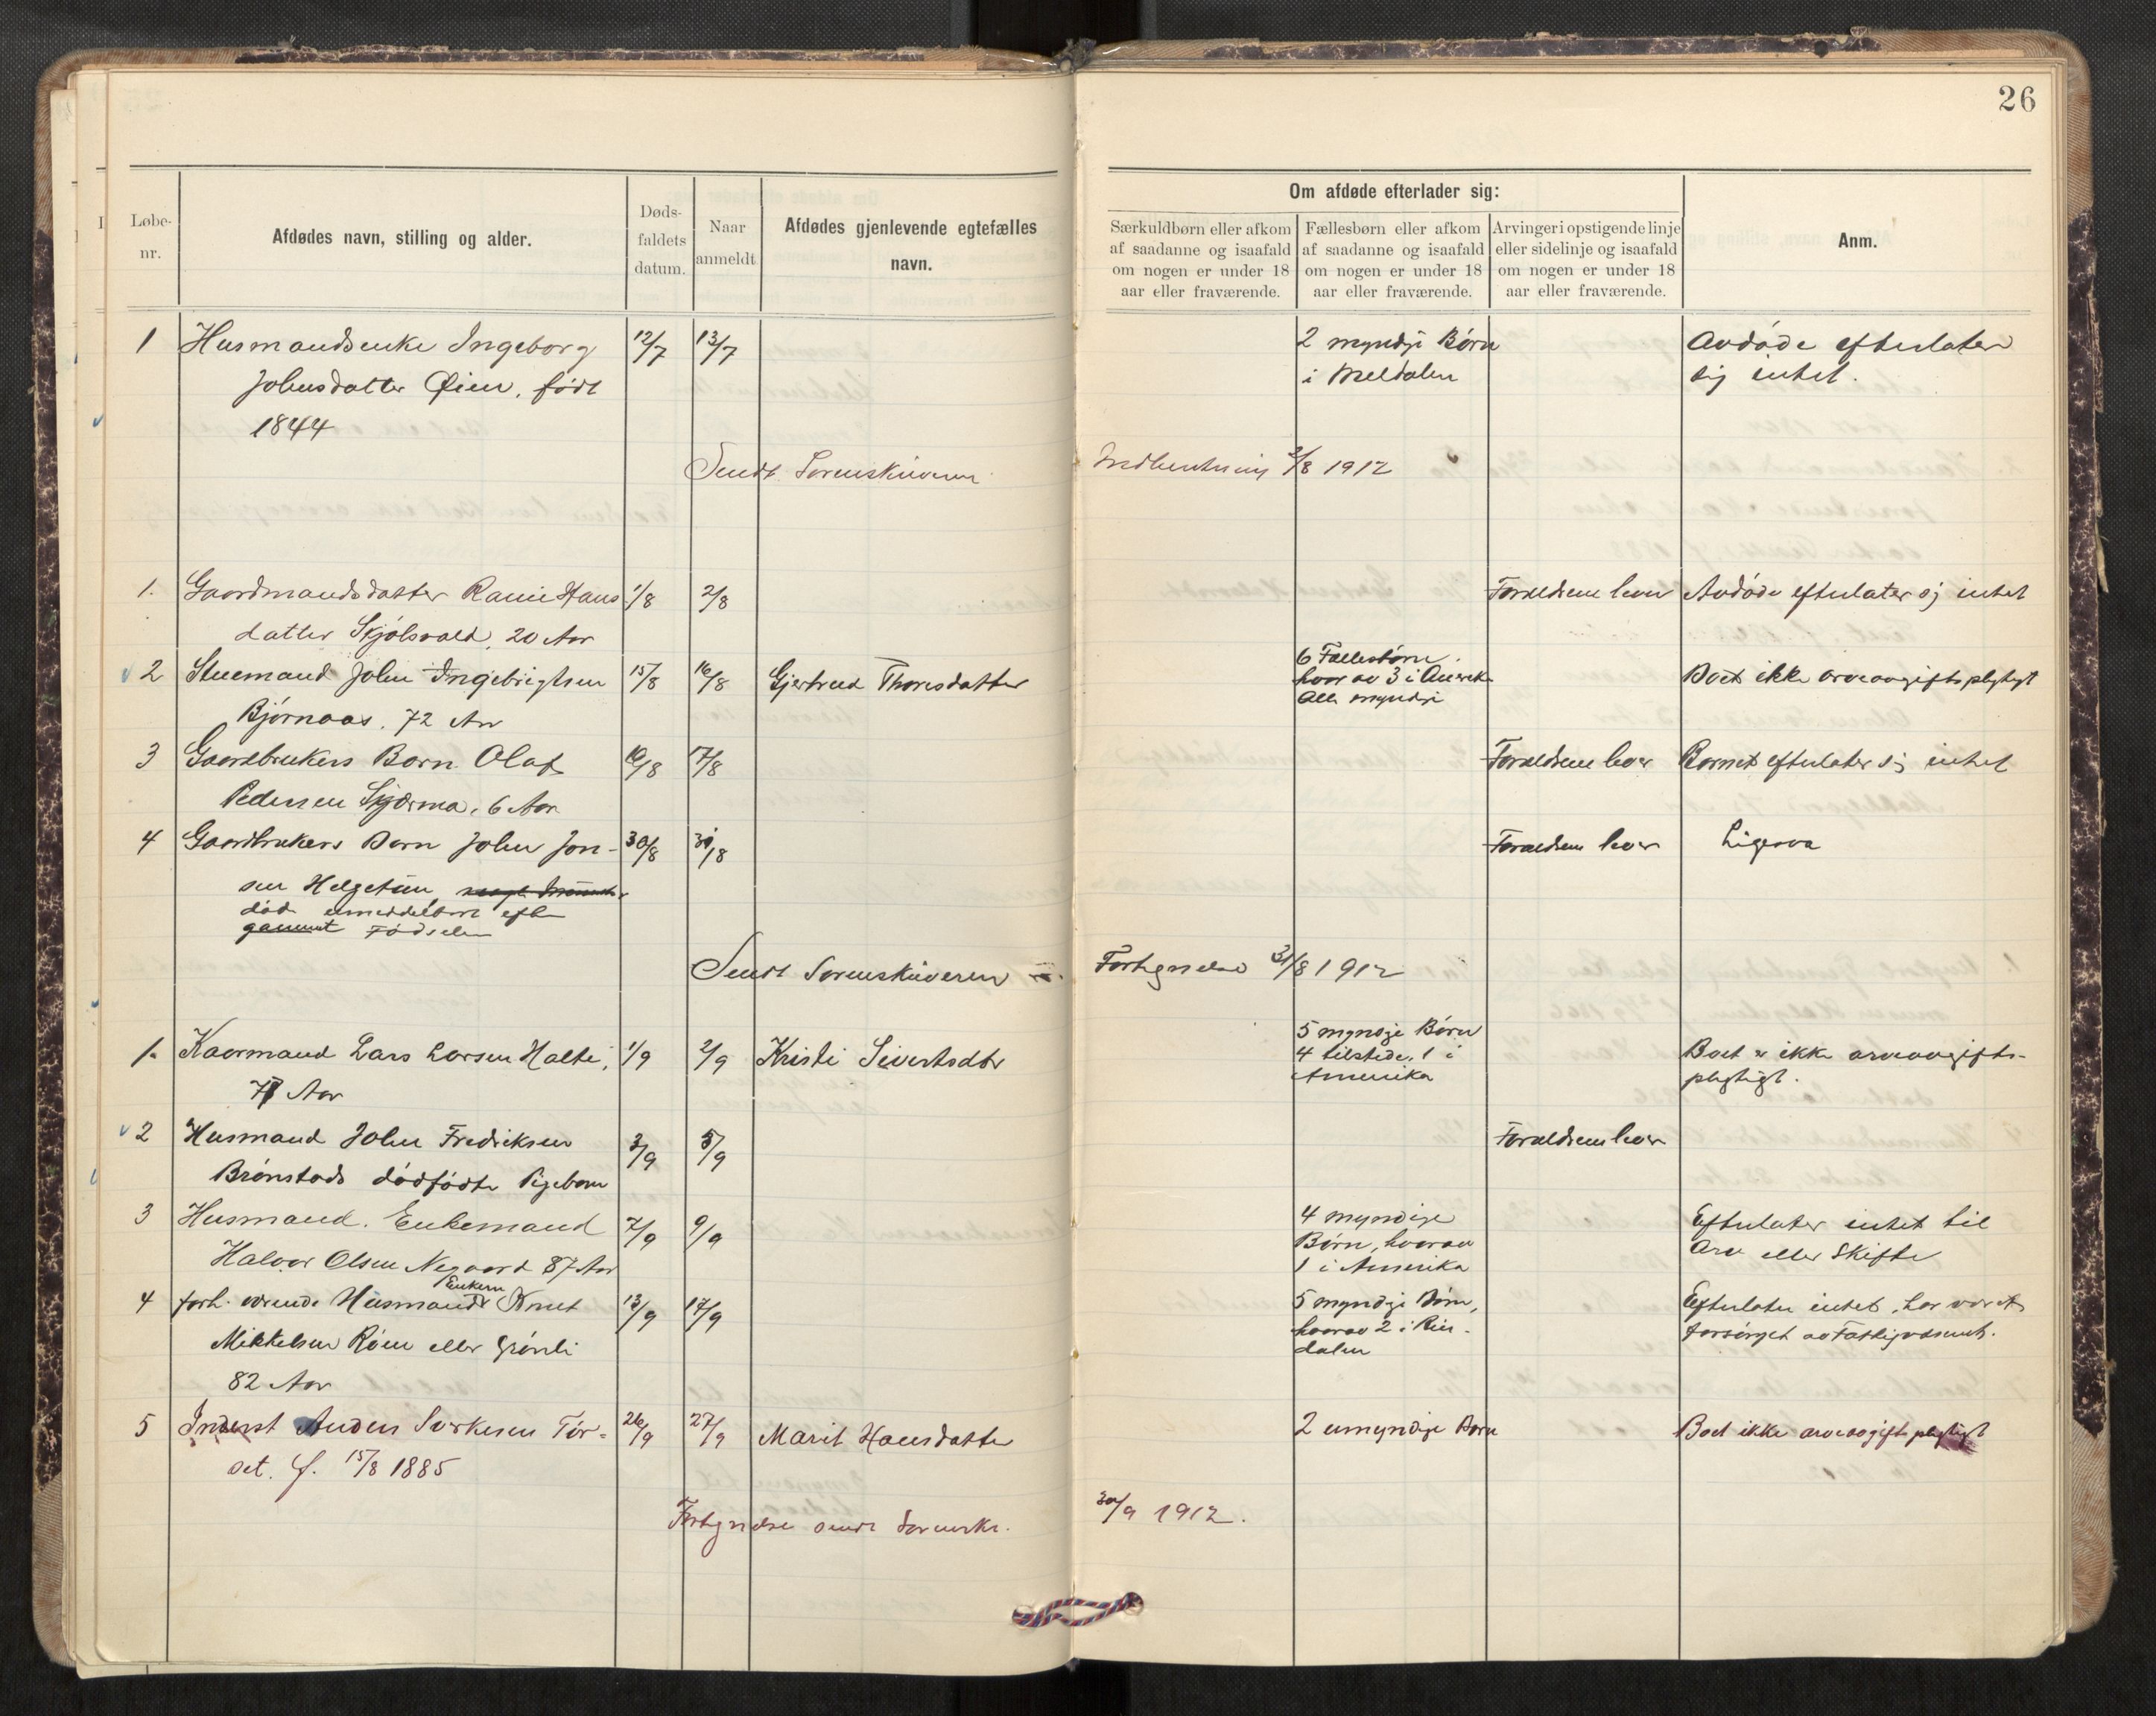 26
Løbe-
nr.
Afdødes navn, stilling og alder.
Døds-
faldets
datum.
Naar
anmeldt
Afdødes gjenlevende egtefælles
navn.
Om afdøde efterlader sig:
Særkuldbørn eller afkom
af saadanne og isaafald
om nogen er under 18
aar eller fraværende.
Fællesbørn eller afkom
af saadanne og isaafald
om nogen er under 18
aar eller fraværende.
Arvinger i opstigende linje
eller sidelinje og isaafald
om nogen er under 18
aar eller fraværende.
Anm.
1 Husmandsenke Ingeborg 12/7 13/7 2 myndje Børn Avdøde efterlater
Johnsdatter Øien, født i Meldalen sig intet.
1844
Sendt Sorenskriveren Indberetning 2/8 1912
1. Gaardmandsdatter Hans 1/8 2/8 Forældrene lever Avdøde efterlater sj intet
datter 20 Aar
2 John Ingebrigtsen 15/8 16/8 Gjertrud Thoresdatter 6 Fællesbørn Boet ikke arveavgiftspligtigt
Bjørnaas, 72 Aar hvorav 3 i Amerika
Alle myndje
3 Gaardbrukers Barn Olaf 16/8 17/8 Forældrene lever Barnet efterlater sj intet
Pedersen 6 Aar
4 Gaardbrukers Barn John Jon- 30/8 30/8 Forældrene lever Ligesaa
sen Helgetun,
død umiddelbart efter
gammel Fødselen
Sendt Sorenskriveren Fortegnelse 31/8 1912
1. Kaarmand Lars Larsen Halte, 1/9 2/9 Kristi Sivertsdtr 5 myndje Børn Boet er ikke arveavgifts-
7 Aar 4 tilstede, 1 i pligtigt.
Amerika
2 Husmand John Fredriksen 3/9 5/9 Forældrene lever
Brønstads dødfødte Pigebarn
3 Husmand. Enkemand 7/9 9/9 4 myndige Efterlater intet til
Halvor Olsen 87 Aar Børn, hvorav Arv eller Skifte
1 i Amerika
4 forh. værende Husmand Enkem Knut 13/9 17/9 5 myndje Børn, Efterlater intet, har været
Mikkelsen Røen eller Grønli hvorav 2 i Rin- forsørget av Fattigvæsenet.
82 Aar dalen
5 Inderst Anders 26/9 27/9 Marit Hansdatter 2 umyndje Barn Boet ikke arveavgiftspligtigt
set. f. 15/8 1885
Fortegnelse sendt Sorenskr. 30/9 1912.